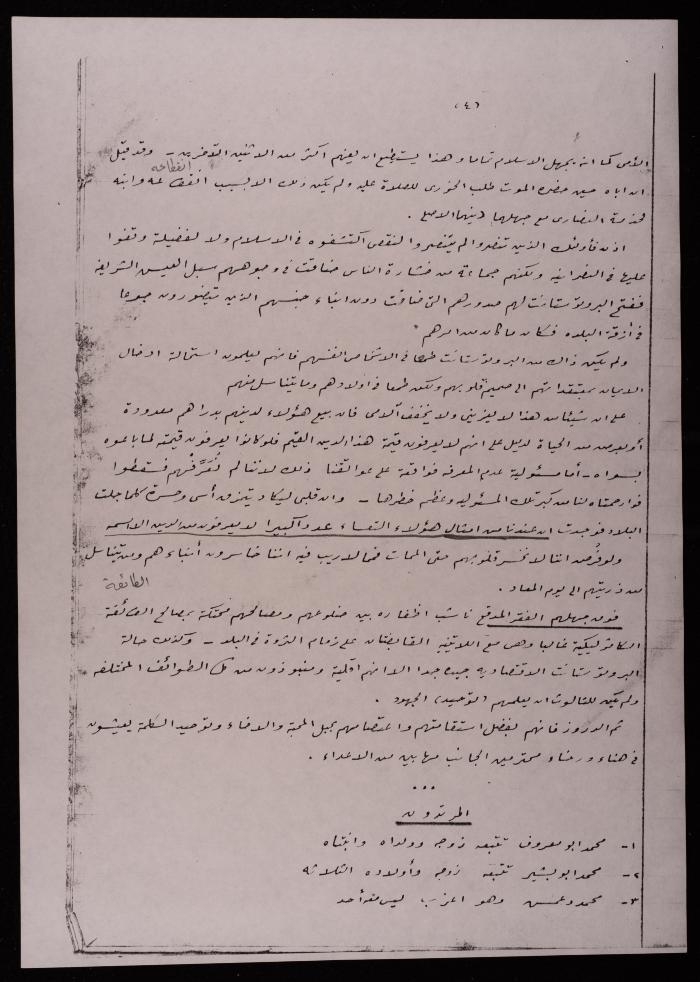 (٤)
الأمي كما انه يجهل الاسلام تماما وهذا يستطيع ان يعينهم اكثر من الاثنين الآخرين - وقد قيل
انقطاعه
ان اباه حين حضره الموت طلب الخوري للصلاة عليه ولم يكن ذلك الا بسبب وابنه
لخدمة النصارى مع جهلهما دينهما الاصلي .
اذن فأولئك الذين تنصروا لم يتنصروا لنقص اكتشفوه في الاسلام ولا لفضيلة وقفوا
عليها في النصرانية ولكنهم جماعة من الناس ضاقت في وجوههم سبل العيش الشريفة
ففتح البروتستانت لهم صدورهم التي ضاقت دون ابناء جنسهم الذين يتضورون جوعا
في أزقة البلده فكان ما كان من امرهم
ولم يكن ذاك من البروتستانت طمعا في الاشخاص انفسهم فانهم يعلمون استحالة ادخال
الايمان بمعتقداتهم الى صميم قلوبهم ولكن طمعا في اولادهم وما يتناسل منهم
على ان شيئا من هذا لا يعزيني ولا يخفف آلامي فان بيع هؤلاء لدينهم بدراهم معدودة
أو بعرض من الحياة لدليل على انهم لا يعرفون قيمة هذا الدين القيم فلو كانوا يعرفون قيمته لما باعوه
بسواه - أما مسئولية عدم المعرفه فواقعة على عواتقنا ذلك لاننا لم نُعَرِّفهم فسقطوا
فوارحمتاه لنا من كبر تلك المسئوليه وعظم خطرها - وان قلبي ليكاد يتمزق أسى وحسرة كلما جلت
البلاد فوجدت ان عندنا من امثال هؤلاء التعساء عددا كبيرا لا يعرفون من الدين الا اسمه
ولو فُرض اننا لا نخسر قلوبهم حتى الممات فمما لا ريب فيه اننا خاسرون أبناءهم ومن يتناسل
من ذريتهم الى يوم المعاد .
الطائفة
فوق جهلهم الفقر المدقع ناشب اظفاره بين ضلوعهم ومصالحهم محتكة بمصالح الفائقة
الكاثوليكية غالبا وهي مع اللاتين القابضتان على زمام الثروة في البلد - وكذلك حالة
البروتستانت الاقتصاديه جيده جدا الا انهم اقلية ومنبوذون من كل الطوائف المختلفه
ولم يكن للثالوث ان يعلمهم (التوحيد) الجهود .
ثم الدروز فانهم بفضل استقامتهم واعتصامهم بحبل المحبة والاخاء وتوحيد الكلمة يعيشون
في هناء ورخاء محترمين الجانب مهابين من الاعداء .
...
المرتدون
١- محمد ابو معروف تتبعه زوجه وولداه وابنتاه
٢- محمد ابو بشير تتبعه زوجه وأولاده الثلاثه
٣- محمد وهو اعزب ليس معه أحد